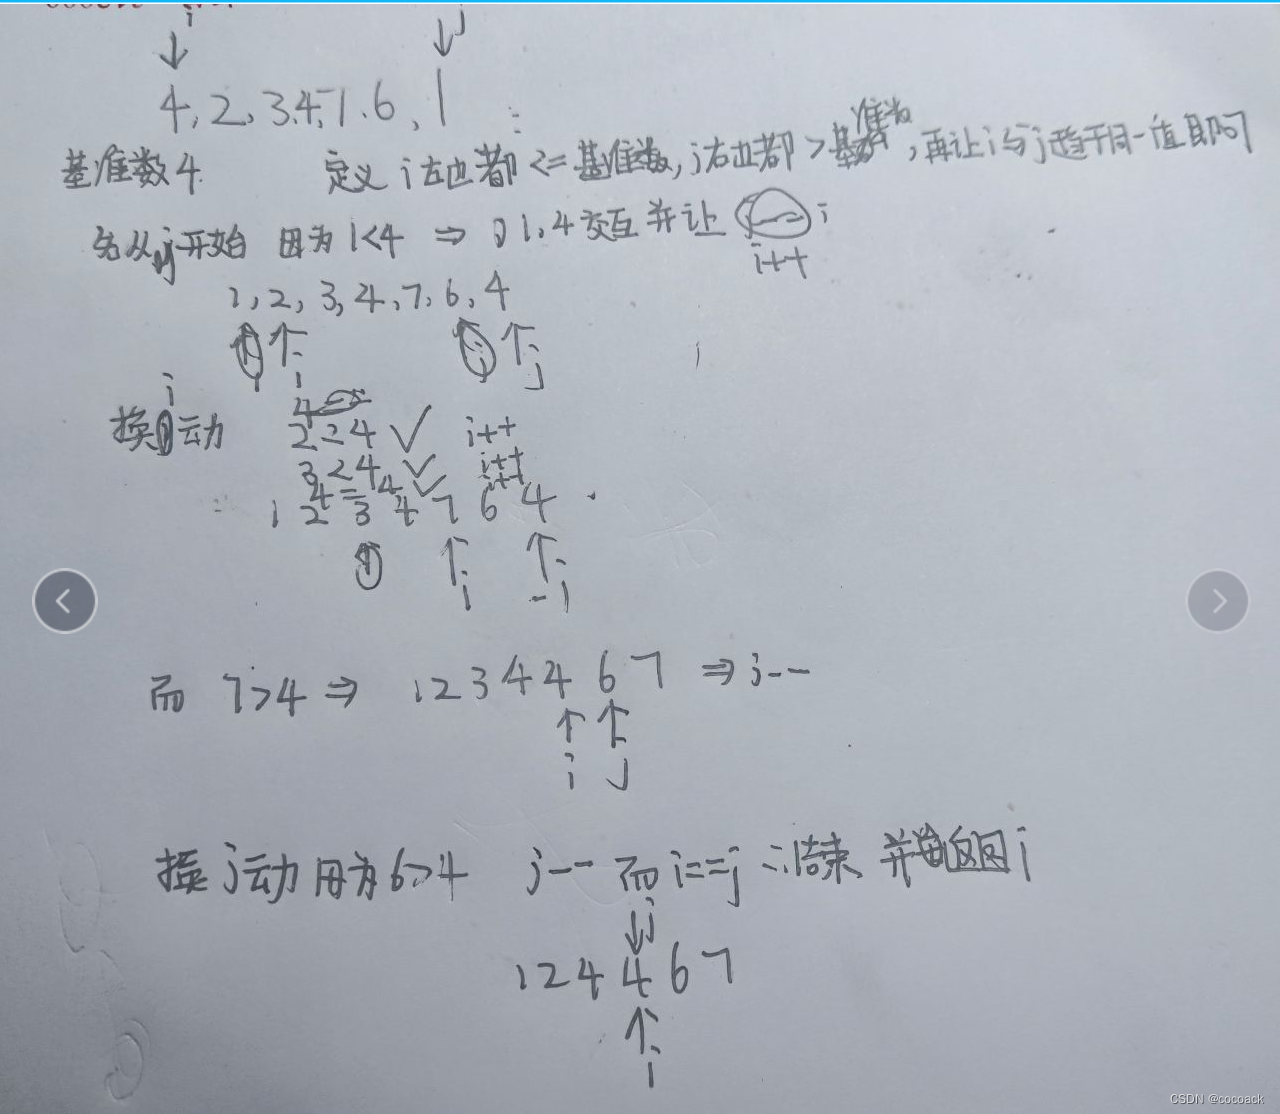 i j
4, 2, 3.4, 7. 6, 1
基准数4. 定义 i左边都<=基准数, j右边都>基准数, 再让i与j趋于同一值即可
先从j开始 因为 1<4 ⇒ 1, 4 交互 并让 i
i++
1, 2, 3, 4, 7, 6, 4
i j
换i运动
2 2 4 ✓ i++
3 2 4 ✓ i++
4 = 4 ✓ i++
1 2 3 4 7 6 4
i j
而 7>4 ⇒ 1 2 3 4 4 6 7 ⇒ j--
i j
换 j运动 因为6>4 j-- 而 i==j ∴结束 并返回i
j
1 2 4 4 6 7
i
CSDN @cocoack